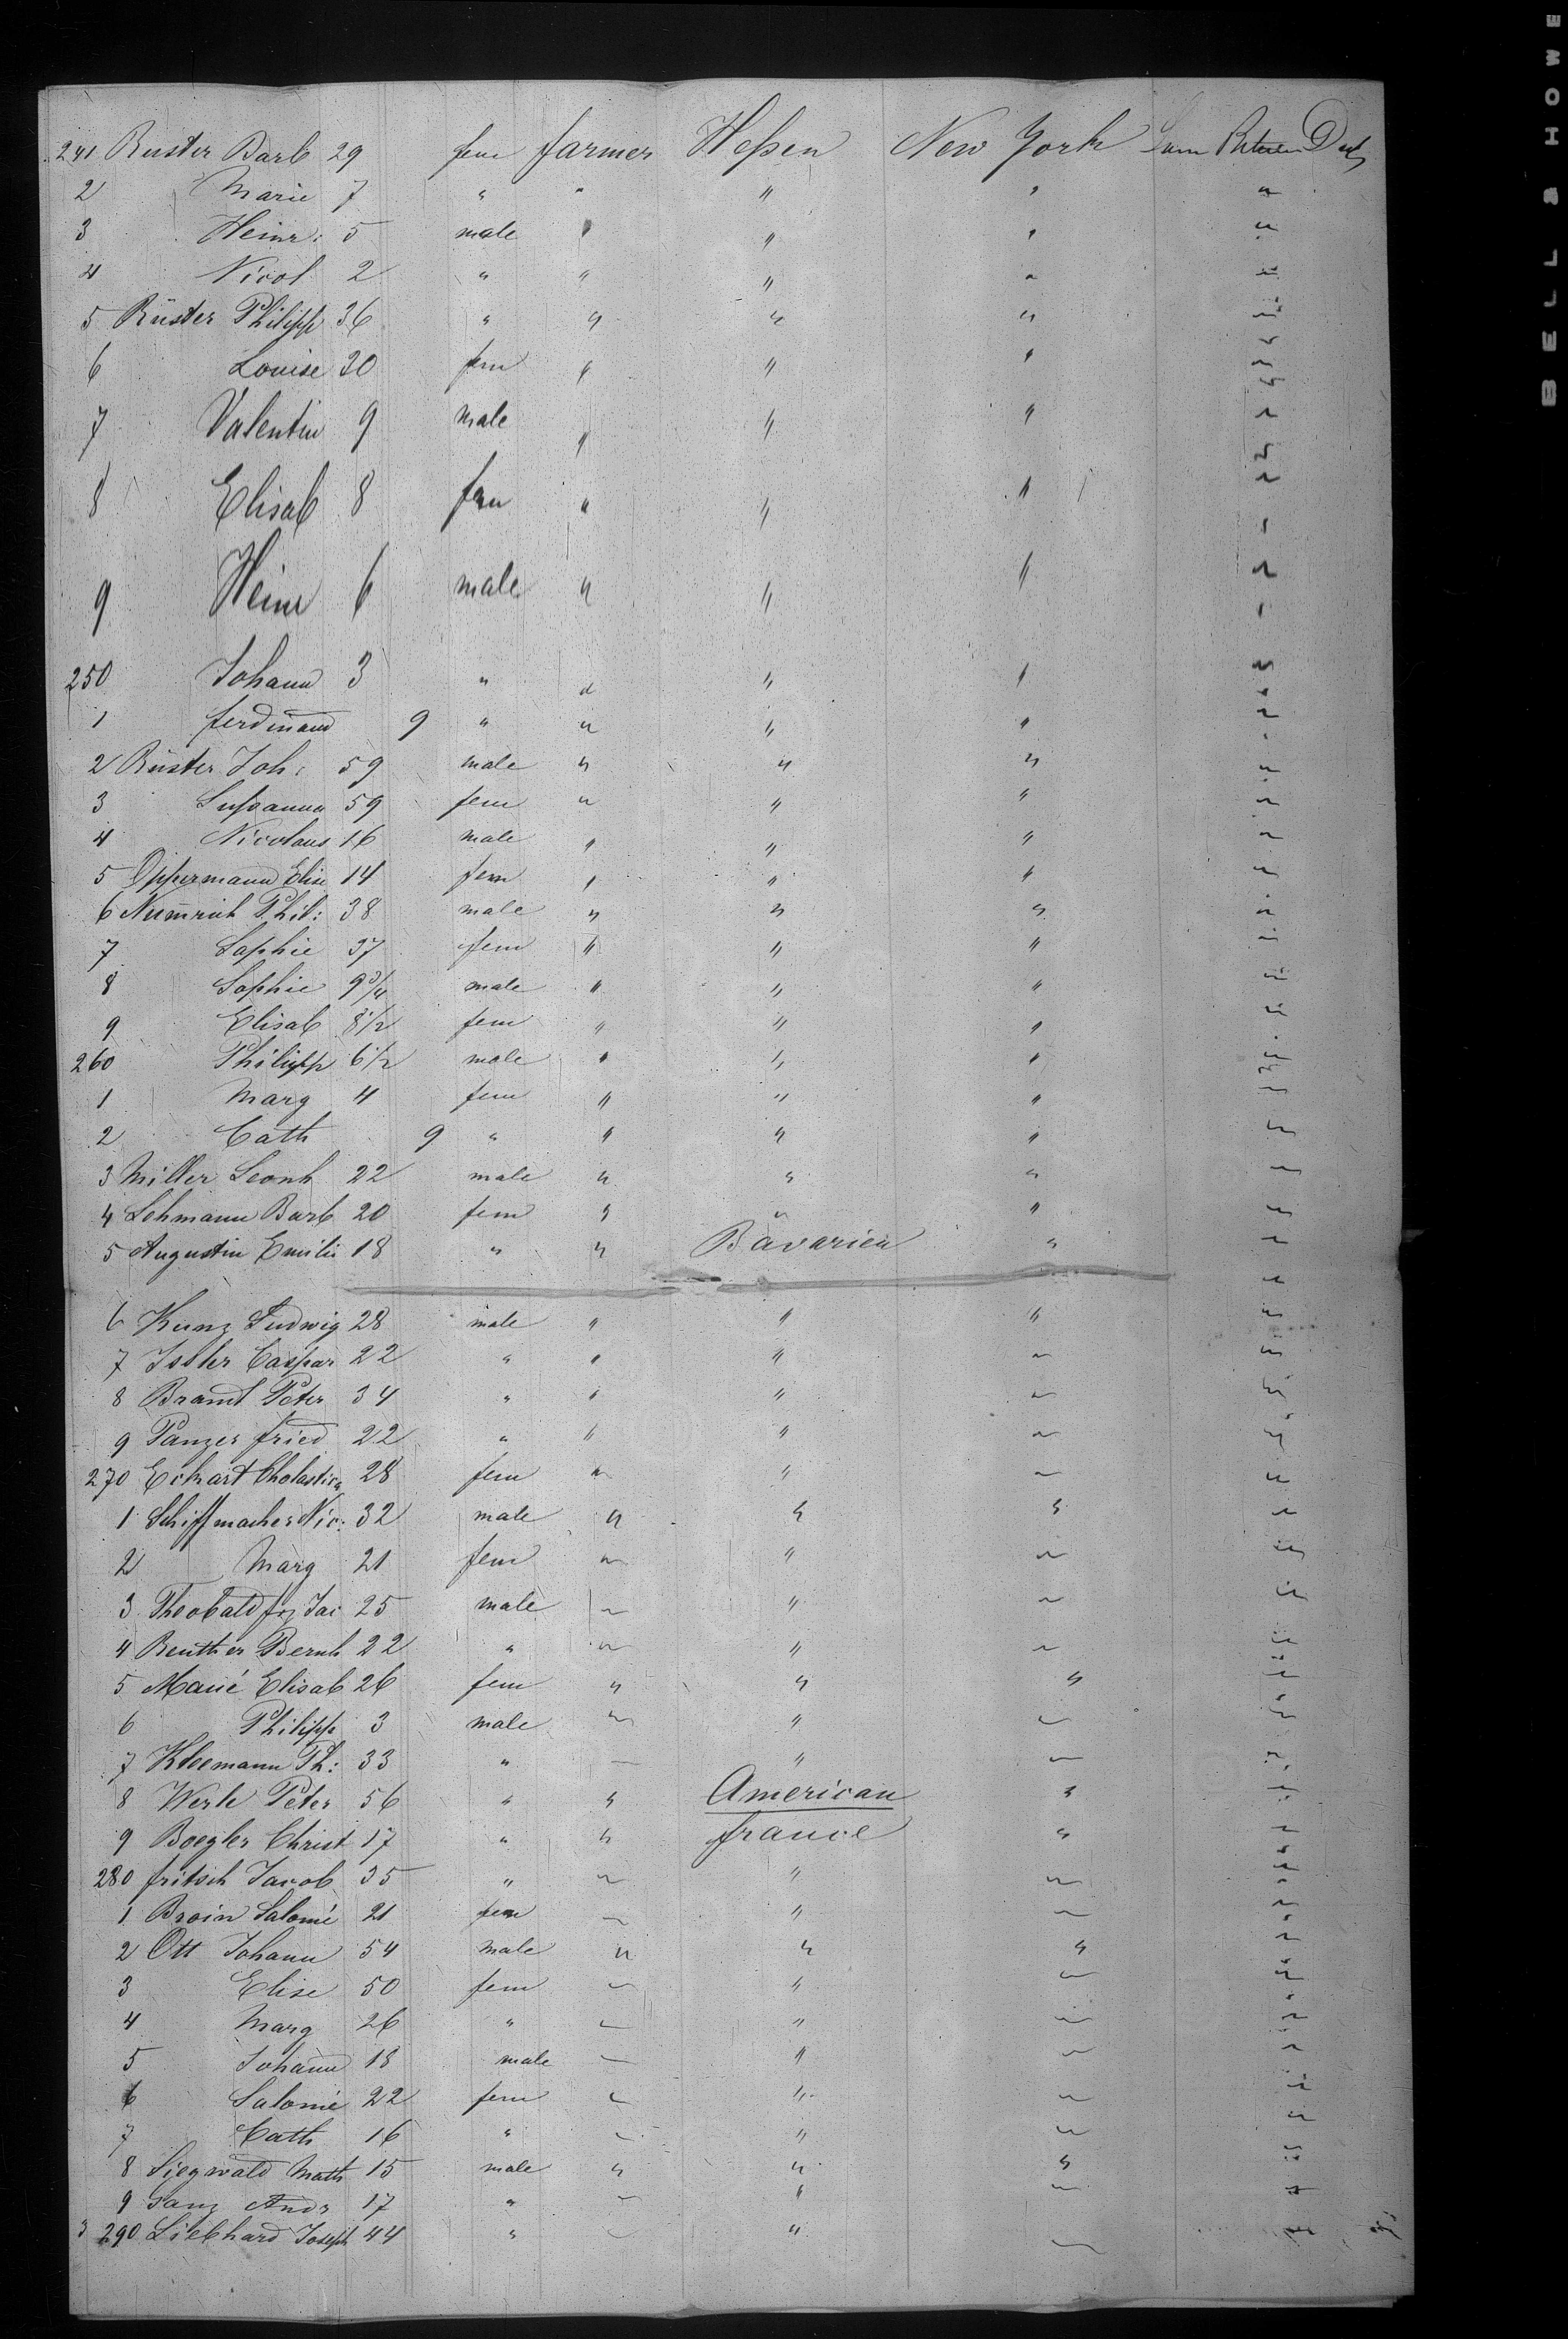 241 Rüster Barb 29 fem farmer Heßen New York Deck
2 Marie 7 " " " " "
3 Heinr: 5 male " " " "
4 Nicol 2 " " " " "
5 Rüster Philipp 36 " " " " "
6 Louise 30 fem " " " "
7 Valentin 9 male " " " "
8 Elisab 8 fem " " " "
9 Heinr 6 male " " " "
250 Johann 3 " " " " "
1 ferdinand 9 " " " " "
2 Rüster Joh: 59 male " " " "
3 Sußanna 59 fem " " " "
4 Nicolaus 16 male " " " "
5 Oppermann Elise 14 fem " " " "
6 Num̄rich Phil: 38 male " " " "
7 Sophie 37 fem " " " "
8 Sophie 9 3/4 male " " " "
9 Elisab 8 1/2 fem " " " "
260 Philipp 6 1/2 male " " " "
1 Marg 4 fem " " " "
2 Cath 9 " " " " "
3 Miller Leonh 22 male " " " "
4 Lehmann Barb 20 fem " " " "
5 Augustin Emilie 18 " " Bavarien " "
6 Kunz Ludwig 28 male " " " "
7 Issler Caspar 22 " " " " "
8 Brandt Peter 34 " " " " "
9 Panzer fried 22 " " " " "
270 Eckart Cholastica 28 fem " " " "
1 Schiffmacher Nic: 32 male " " " "
2 Marg 21 fem " " " "
3 Theobald frz Jac 25 male " " " "
4 Reuther Bernh 22 " " " " "
5 Marié Elisab 26 fem " " " "
6 Philipp 3 male " " " "
7 Kleemann Ph: 33 " " " " "
8 Werle Peter 56 " " American " "
9 Boegler Christ 17 " " france " "
280 fritsch Jacob 35 " " " " "
1 Broin Salomé 21 fem " " " "
2 Ott Johann 54 male " " " "
3 Elise 50 fem " " " "
4 Marg 26 " " " " "
5 Johann 18 male " " " "
6 Salomé 22 fem " " " "
7 Cath 16 " " " " "
8 Siegwald Math 15 male " " " "
9 Andr 17 " " " " "
290 Liebhard Joseph 44 " " " " "
BELL & HOWE